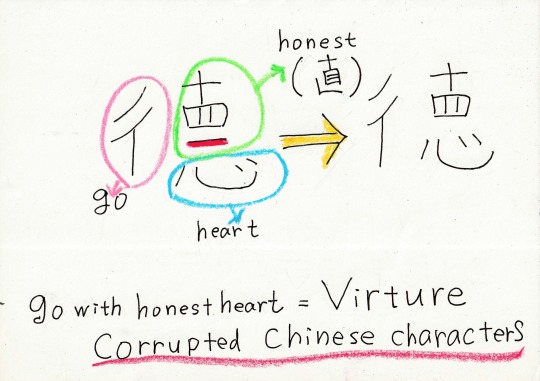 honest
(直)
德 徳
go
heart
go with honest heart = Virture
Corrupted Chinese characters